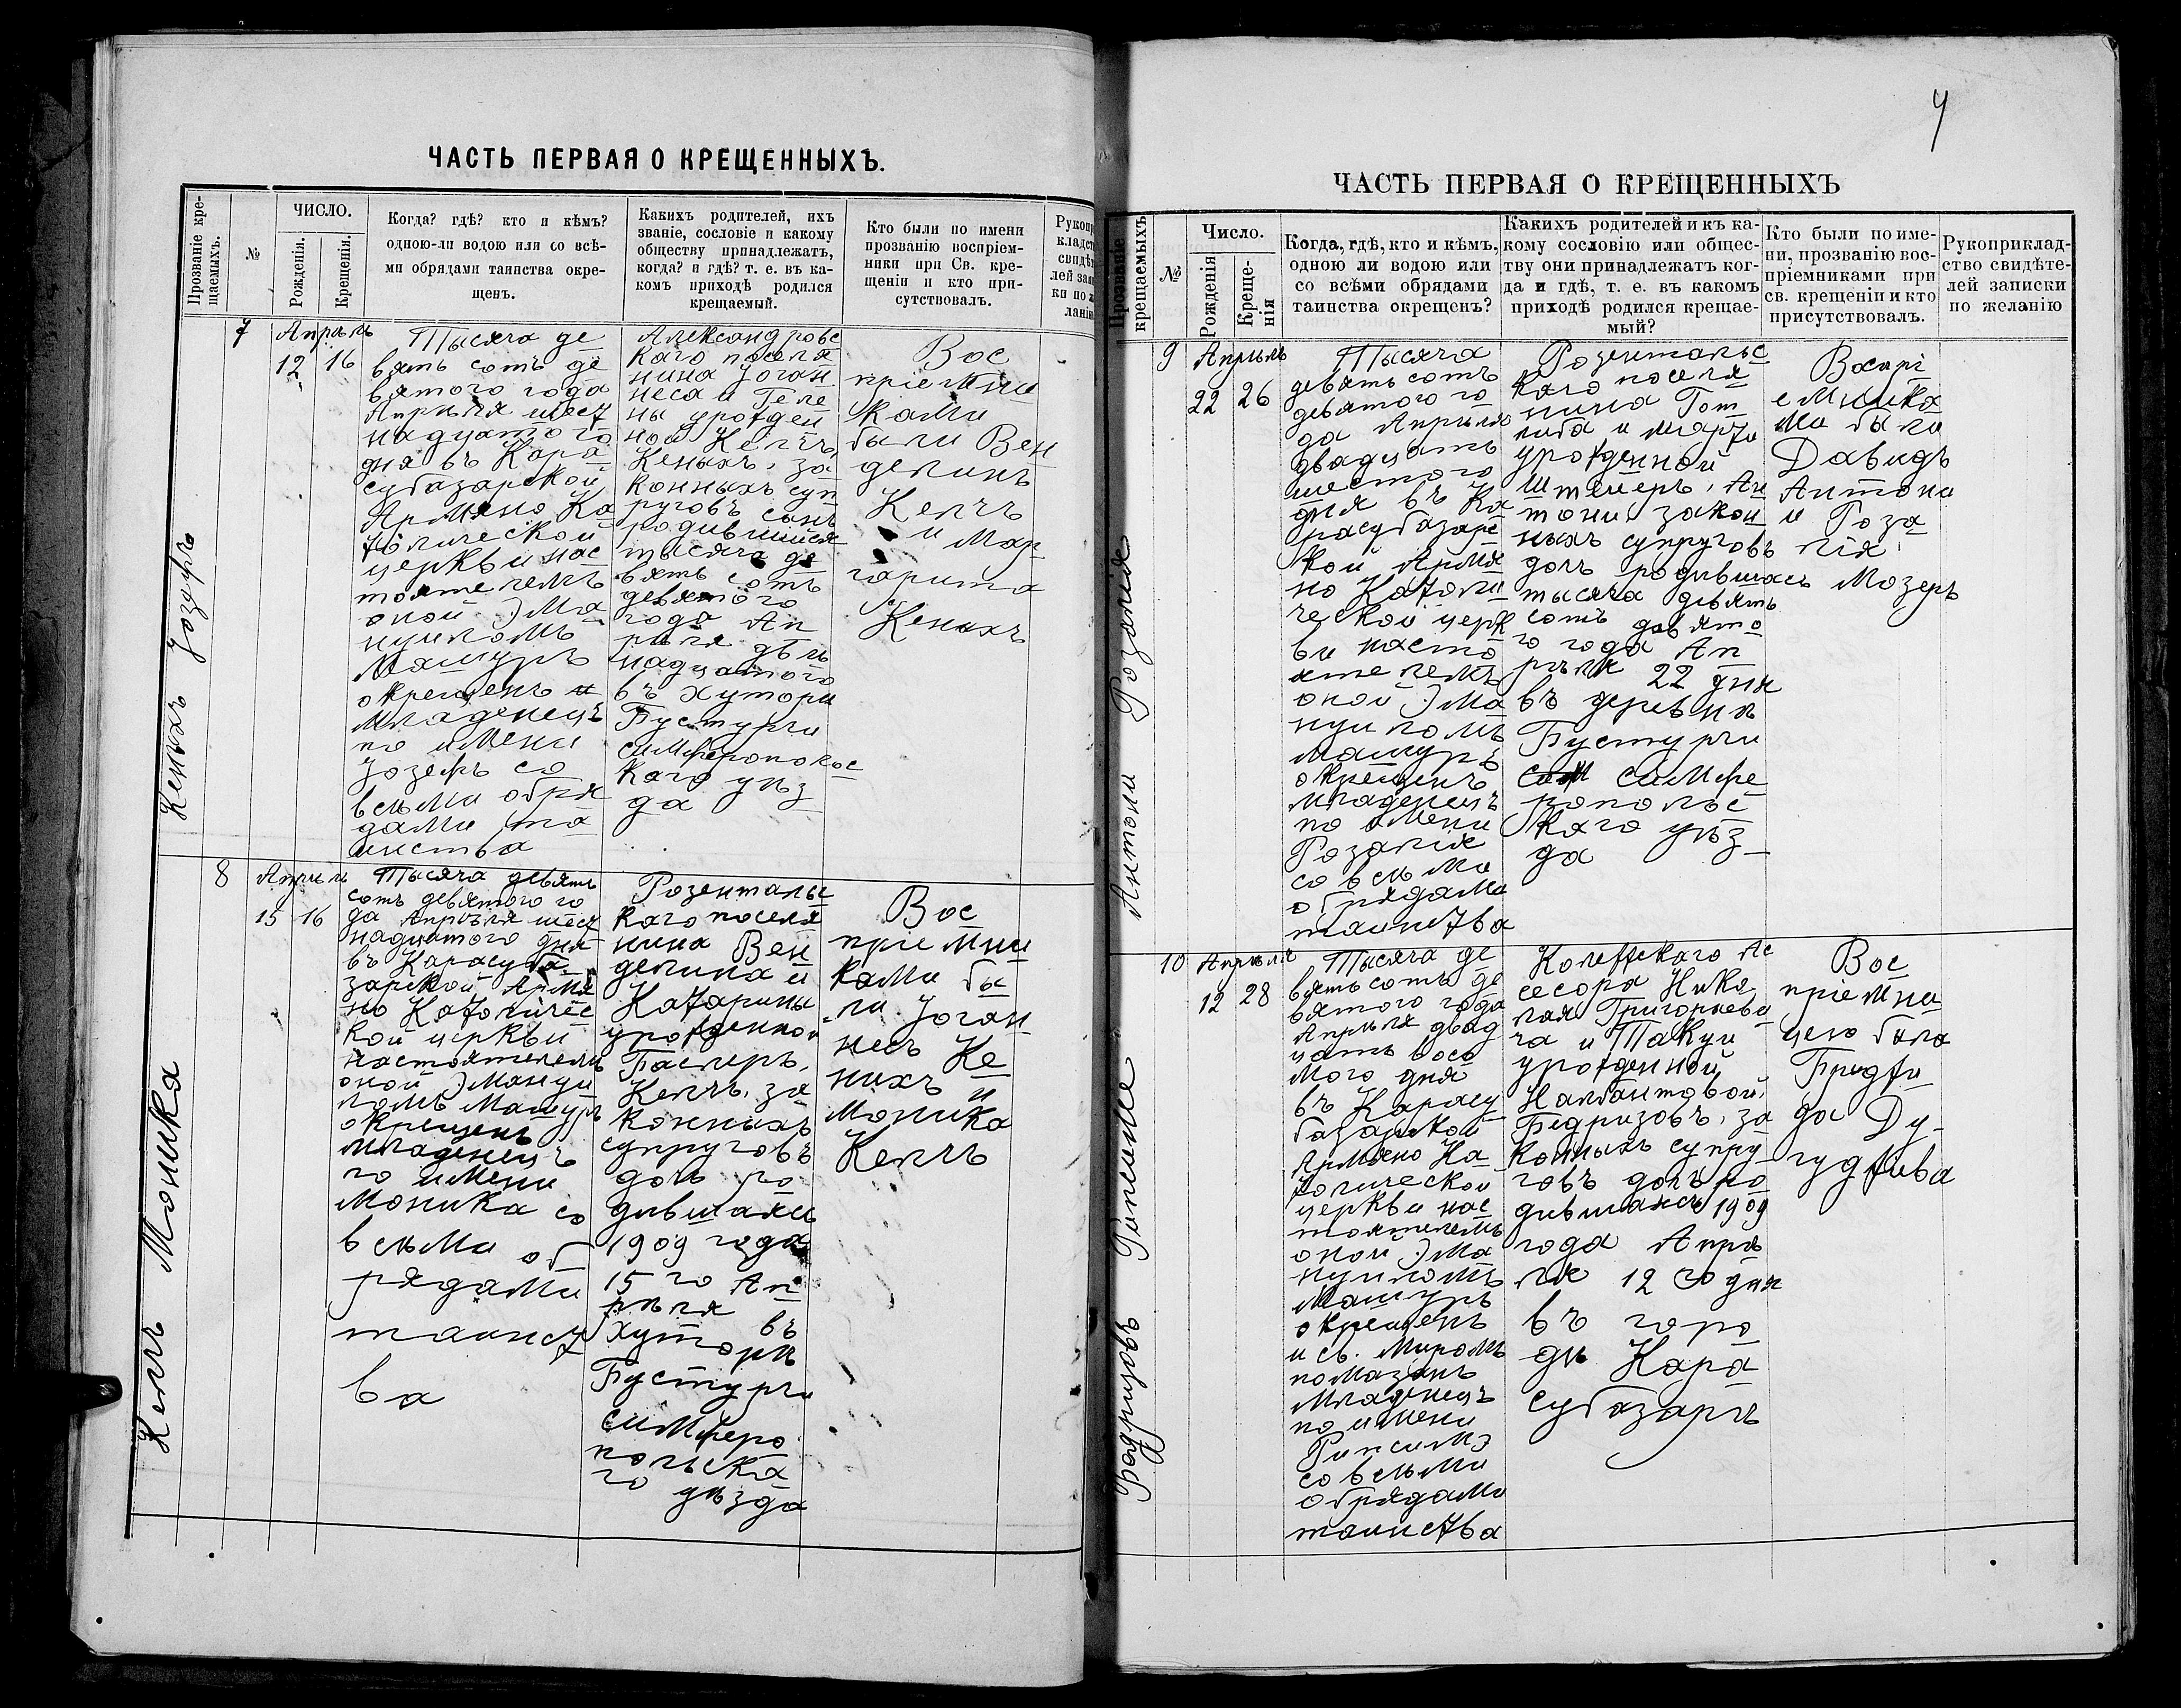 ЧАСТЬ ПЕРВАЯ О КРЕЩЕННЫХЪ.
Прозваніе кре-
щаемыхъ.
№
ЧИСЛО.
Рожденія.
Крещенія.
Когда? гдѣ? кто и кѣмъ?
одною-ли водою или со всѣ-
ми обрядами таинства окре-
щенъ.
Какихъ родителей, ихъ
званіе, сословіе и какому
обществу принадлежатъ,
когда? и гдѣ? т. е. въ ка-
комъ приходѣ родился
крещаемый.
Кто были по имени
прозванію воспріем-
ники при Св. кре-
щеніи и кто при-
сутствовалъ.
Кенихъ Іозефъ
7
Апрѣль
12 16
Тысяча де
вять сотъ де
вятого года
Апрѣля шест
надцатого
дня въ Кара
субазарской
Армяно Ка
ѳолической
церкви нас
тоятелемъ
оной Эма
нуиломъ
Машуръ
окрещенъ
младенецъ
по имени
Іозефъ со
всѣми обря
дами та
инства
Александровс
каго поселя
нина Іоган
неса и Геле
ны урожден
ной Келлъ,
Кенихъ, за
конныхъ суп
руговъ сынъ
родившийся
тысяча де
вять сотъ
девятого
года Ап
рѣля двѣ
надцатого
въ хуторѣ
Бустурчи
симферопольс
каго уѣз
да
Вос
пріемни
ками
были Вен
делинъ
Келлъ
и Мар
гарита
Кенихъ
Келлъ Моника
8
Апрѣль
15 16
Тысяча девять
сотъ девятого го
да Апрѣля шест
надцатого дня
въ Карасуба
зарской Армя
но Католичес
кой церкви
настоятелемъ
оной Эмануи
ломъ Машуръ
окрещенъ
младенецъ
по имени
Моника со
всѣми об
рядами
таинст
ва
Розентальс
каго поселя
нина Вен
делина и
Каѳарины
урожденной
Баслеръ,
Келлъ, за
конныхъ
супруговъ
дочь ро
дившаясь
1909 года
15 го Ап
рѣля въ
хуторѣ
Бустурчи
симферо
польска
го уѣзда
Вос
пріемни
ками бы
ли Іоган
несъ Ке
нихъ и
Моника
Келлъ
ЧАСТЬ ПЕРВАЯ О КРЕЩЕННЫХЪ
Прозваніе
крещаемыхъ
№
Число.
Рожденія
Креще-
нія
Когда, гдѣ, кто и кѣмъ,
одною ли водою или
со всѣми обрядами
таинства окрещенъ?
Какихъ родителей и къ ка-
кому сословію или общес-
тву они принадлежатъ ког-
да и гдѣ, т. е. въ какомъ
приходѣ родился крещае-
мый?
Кто были по име-
ни, прозванію вос-
пріемниками при
св. крещеніи и кто
присутствовалъ.
Рукоприклад-
ство свидѣте-
лей записки
по желанію
Антони Розалія
9
Апрѣль
22 26
Тысяча
девять сотъ
девятого го
да Апрѣля
двадцать
шестого
дня въ Ка
расубазарс
кой Армя
но Католи
ческой церк
ви насто
ятелемъ
оной Эма
нуиломъ
Машуръ
окрещенъ
младенецъ
по имени
Розалія
со всѣми
обрядами
таинства
Розентальс
каго поселя
нина Гот
либа и Марѳи
урожденной
Штелеръ, Ан
тони, закон
ныхъ супруговъ
дочь родившась
тысяча девять
сотъ девято
го года Ап
рѣля 22 дня
въ деревнѣ
Бустурчи
симфе
ропольс
каго уѣз
да
Воспрі
емника
ми были
Давидъ
Антони
и Роза
лія
Мозеръ
Бадризовъ Рипсиме
10
Апрѣль
12 28
Тысяча де
вять сотъ де
вятого года
Апрѣля двад
цать вось
мого дня
въ Карасу
базарской
Армяно Ка
ѳолической
церкви нас
тоятелемъ
оной Эма
нуиломъ
Машуръ
окрещенъ
и св. Миромъ
помазанъ
младенецъ
по имени
Рипсимэ
со всѣми
обрядами
таинства
Колежскаго Ас
сесора Нико
лая Григорьеви
ча и Такуи
урожденной
Налбантовой,
Бедризовъ, за
конныхъ супру
говъ дочь ро
дившаясь 1909
года Апрѣ
ля 12 го дня
въ горо
дѣ Кара
субазаръ
Вос
пріемни
цею была